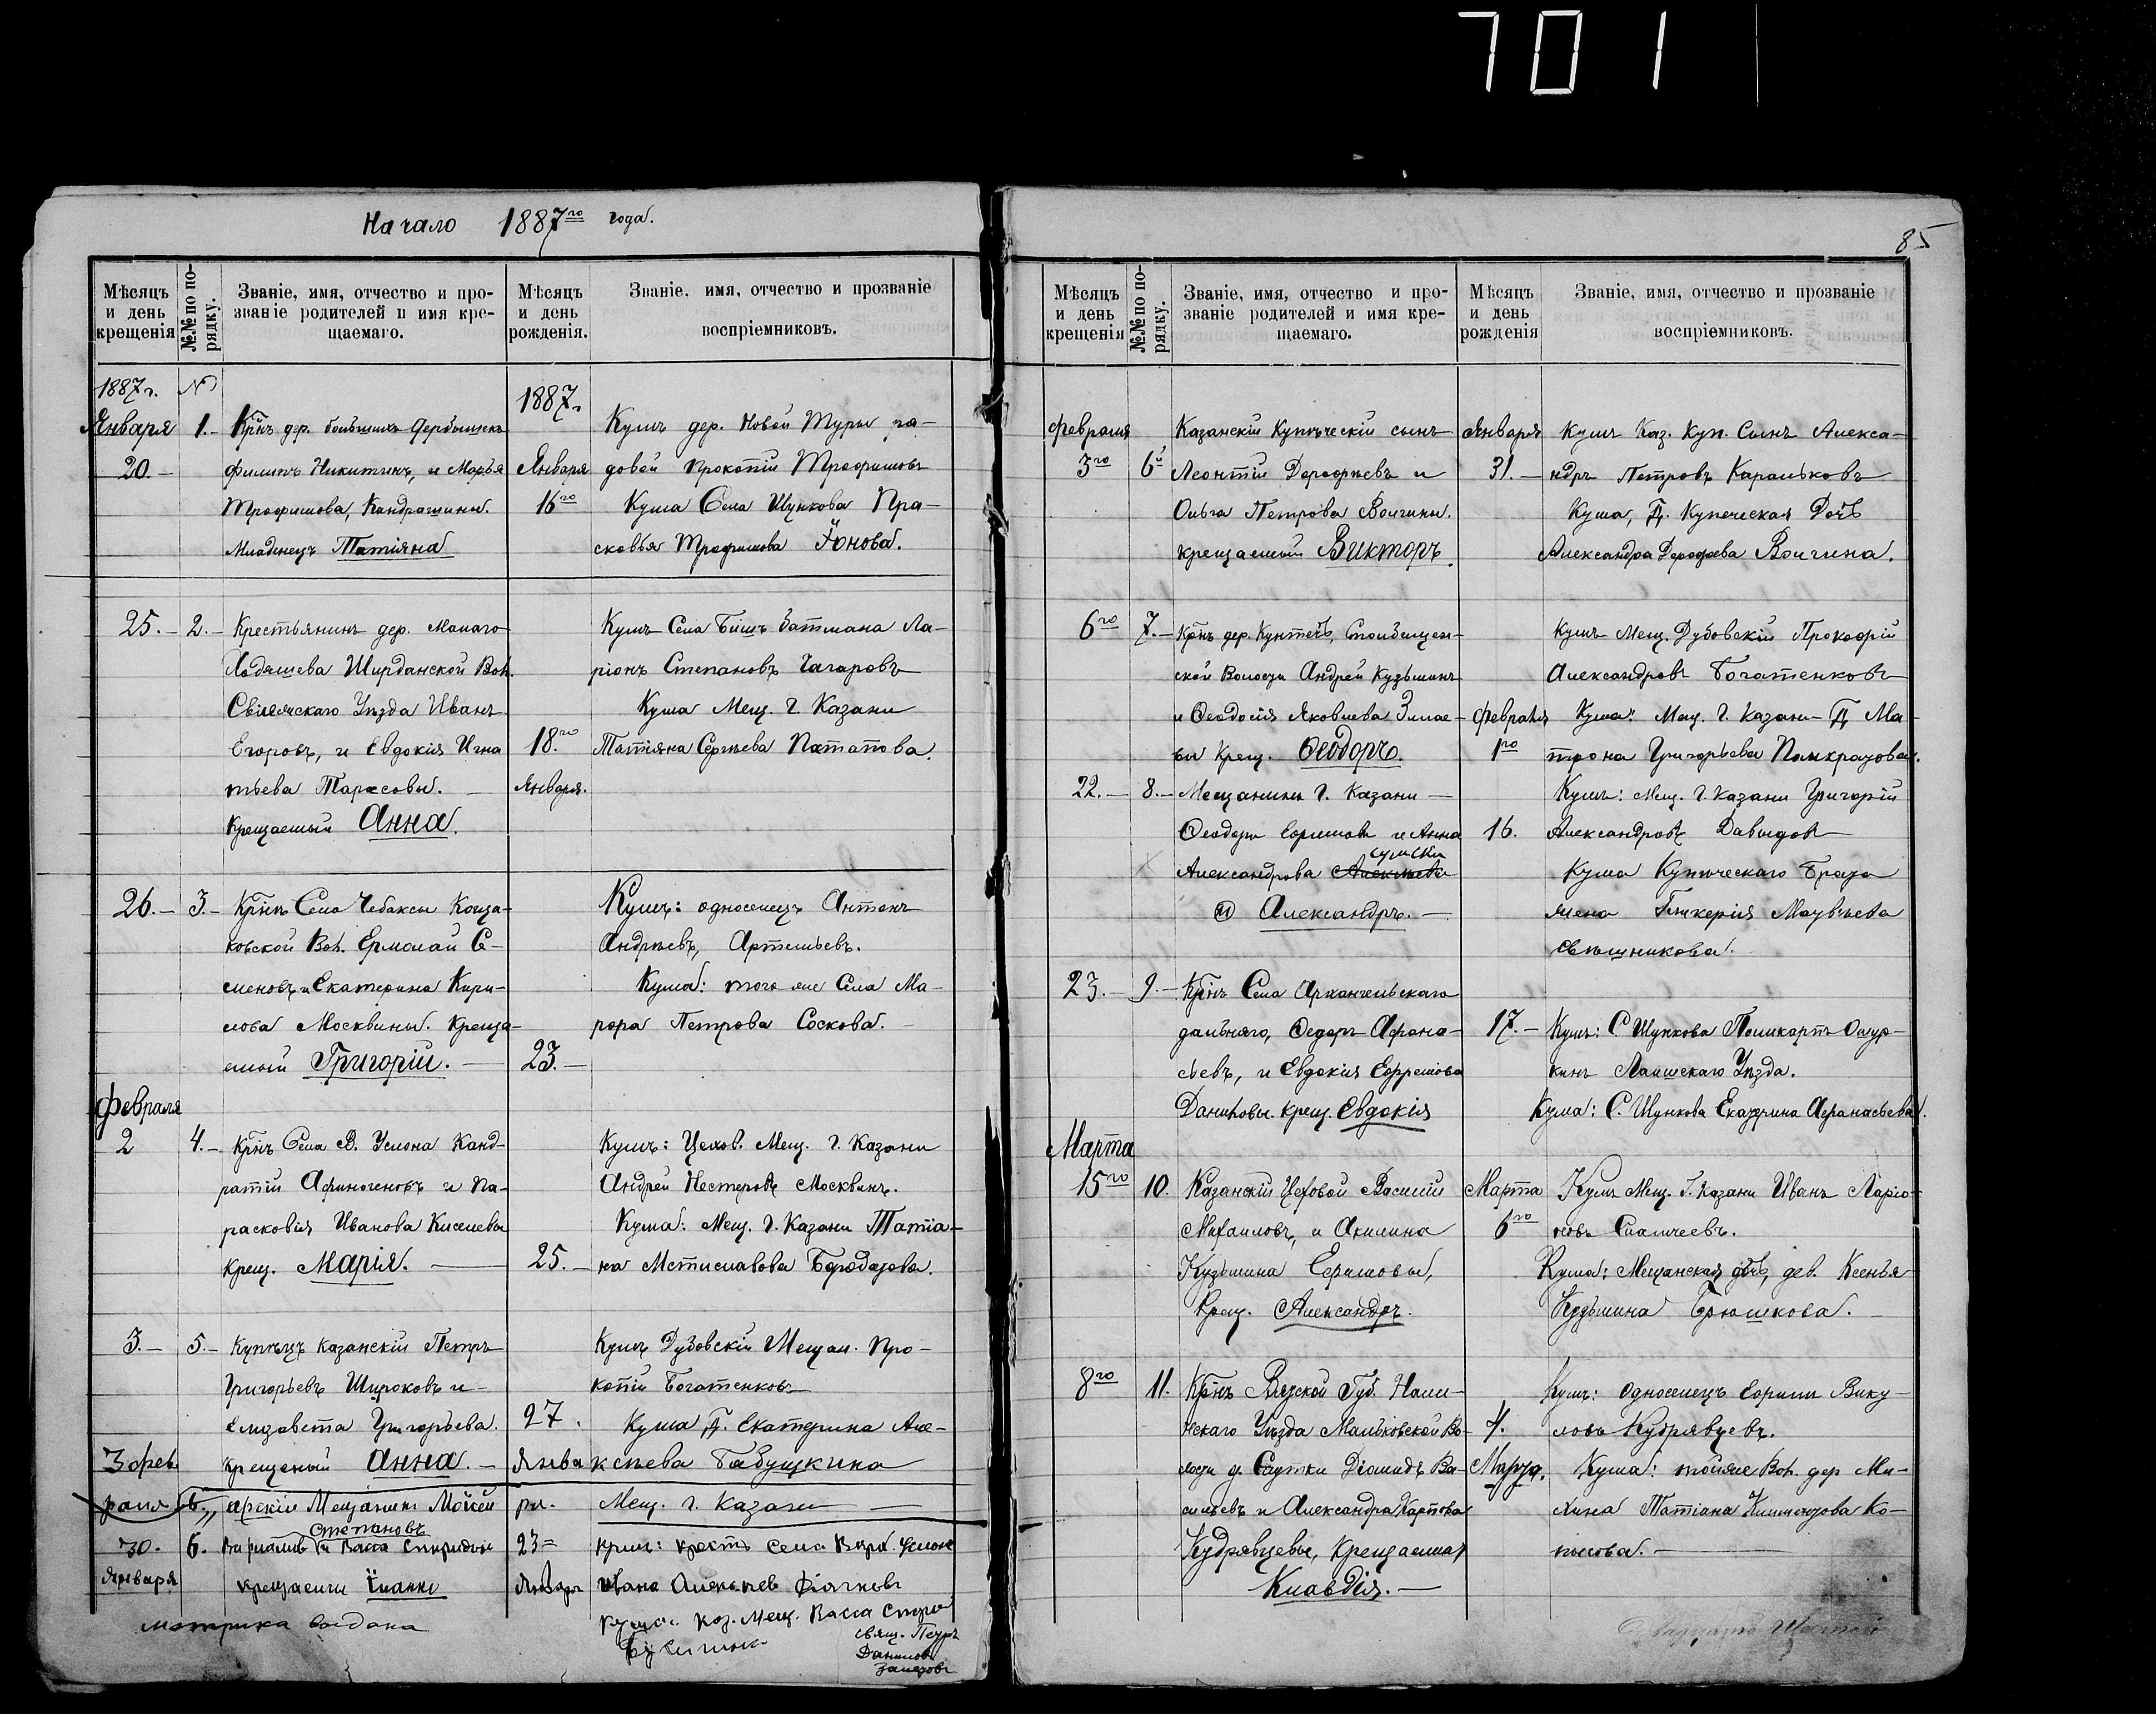 701
Начало 1887го года.
Мѣсяцъ и день крещенія
№№ по порядку.
Званіе, имя, отчество и прозваніе родителей и имя крещаемаго.
Мѣсяцъ и день рожденія.
Званіе. имя, отчество и прозваніе воспріемниковъ.
1887г. № 1887г.
Января 1.- Крнъ дер. большихъ Дербышекъ
20.- Филиппъ Никитинъ, и Марья
Трофимова, Кандрашины.
Младенецъ Татіяна
Января
16го
Кумъ дер. Новой Туры ра-
довой Прокопій Трофимовъ
Кума Села Шункова Пра-
сковья Трофимова Іонова.
25.- 2.- Крестьянинъ дер. Малаго
Ходяшева Ширданской Вол.
Свіяжскаго Уѣзда Иванъ
Егоровъ, и Евдокія Игна
тьева Тарасовы.
Крещаемый Анна.
18.го
Января.
Кумъ Села Бишъ батмана Ла-
ріонъ Степановъ Чагаровъ
Кума Мещ. г. Казани
Татіяна Сергѣева Потапова.
26.- 3.- Крнъ Села Чебаксы Коща-
ковской Вол. Ермолай Се-
меновъ и Екатерина Кири-
лова Москвины. Креща-
емый Григорій.
23.-
Кумъ: односелецъ Антонъ
Андрѣевъ, Артемьевъ.
Кума: того же Села Ма-
рѳра Петрова Соскова.
Февраля
2 4.- Крнъ Села В. Услона Канд-
ратій Афиногеновъ и Па-
расковія Иванова Киселева
Крещ. Марія.
25.-
Кумъ: Цехов. Мещ. г. Казани
Андрей Нестеровъ Москвинъ.
Кума: Мещ. г. Казани Татіа-
на Мстиславова Бородазова.
3.- 5.- Купецъ Казанскій Петръ
Григорьевъ Широковъ и
Елизавета Григорьева.
крещеный Анна.
27.
Янва
ря.
Кумъ Дубовскій Мещан. Про-
копій Богатенковъ
Кума д. Екатерина Але-
ксѣева Бабушкина
Мещ. г. Казани
3 фев
раля 6., арскій Мещанинъ Мойсей
Степановъ
30. 6. и Васса Спиридон
Января крещаемы Іоаннъ
23=
Января
Кумъ: крест. села Верх. Услон
Ивана Алексѣев
Кума: Каз. Мещ. Васса Спири
метрика выдана
свящ. Петръ
Даниловъ
85
Мѣсяцъ и день крещенія
№№ по порядку.
Званіе, имя, отчество и прозваніе родителей и имя крещаемаго.
Мѣсяцъ и день рожденія
Званіе, имя, отчество и прозваніе воспріемниковъ.
Февраля
3го 6й
Казанскій Купѣческій сынъ
Леонтій Дорофѣевъ и
Ольга Петрова Волгины.
крещаемый Викторъ.
Января
31.-
Кумъ Каз. Куп. Сынъ Алекса-
ндръ Петровъ Каральковъ
Кума, д. Купеческая Дочь
Александра Дорофѣева Волгина.
6го 7.- Крнъ дер. Кунтечь, Столбищен-
ской Волости Андрей Кузьминъ
и Ѳеодосія Яковлева Змае-
вы Крещ. Ѳеодоръ.
Февраля
1го
Кумъ Мещ. Дубовскій Прокофій
Александровъ Богатенковъ
Кума: Мещ. г. Казани д Ма-
трона Григорьева Панкратова.
22.- 8.- Мещанинъ г. Казани
Ѳеодоръ Ефимовъ и Анна
Александрова
Александръ.
16.
Кумъ: Мещ. г. Казани Григорій
Александровъ Давыдовъ
Кума Купѣческаго Брата
жена Гликерія Матвѣева
Свѣшникова.
23.- 9.- Крнъ Села Архангельскаго
дальняго, Ѳедоръ Афана-
сьевъ, и Евдокія Ефремова
Даниловы. крещ. Евдокія
17.-
Кумъ: С Шункова Поликарпъ Ошур-
кинъ Лаишскаго Уѣзда.
Кума: С. Шункова Екатерина Афанасьева.
Марта
15го 10. Казанскій Цеховой Василій
Михаиловъ, и Акилина
Кузьмина Ефимовы,
Крещ. Александръ.
Марта
6го
Кумъ Мещ. г. Казани Иванъ Ларіо-
новъ
Кума: Мещанская дочь, дев. Ксенья
Кузьмина Брюшкова.
8го 11. Крнъ Вятской Губ. Нолин-
скаго Уѣзда Мальковской Во-
лости д. Саутки Діомидъ Ва-
сильевъ и Александра Карпова
Кудрявцевы, Крещаемая
Клавдія.
4.
Марта.
Кумъ: односелецъ Ефимъ Вику-
ловъ Кудрявцевъ.
Кума: тойже Вол. дер Ми-
хина Татіана Климентова Ко-
пысова.